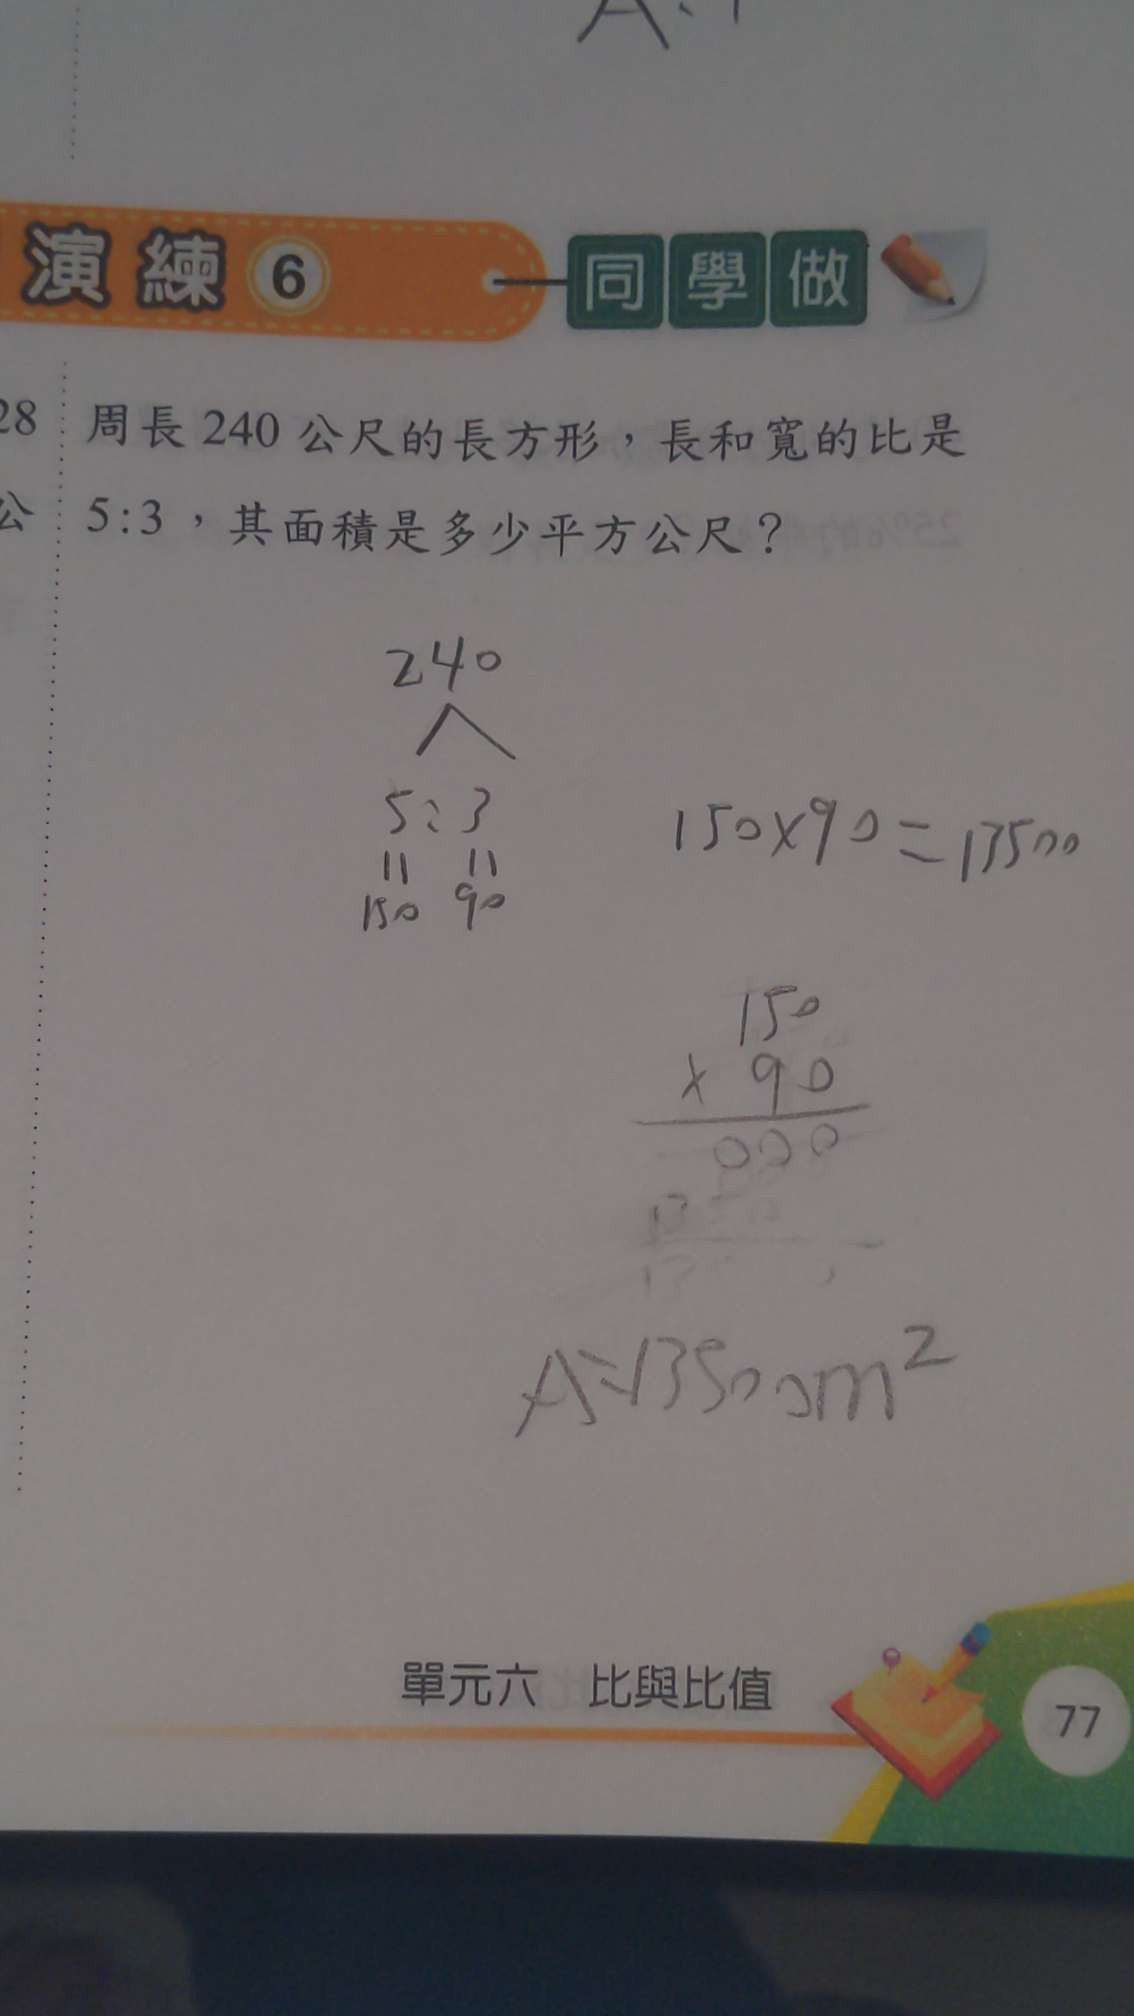 演練 6 同學做
28
周長 240 公尺的長方形，長和寬的比是
公
5:3，其面積是多少平方公尺？
240
5:3
150 90
150×90=13500
150
× 90
000
A=13500m²
單元六 比與比值
77